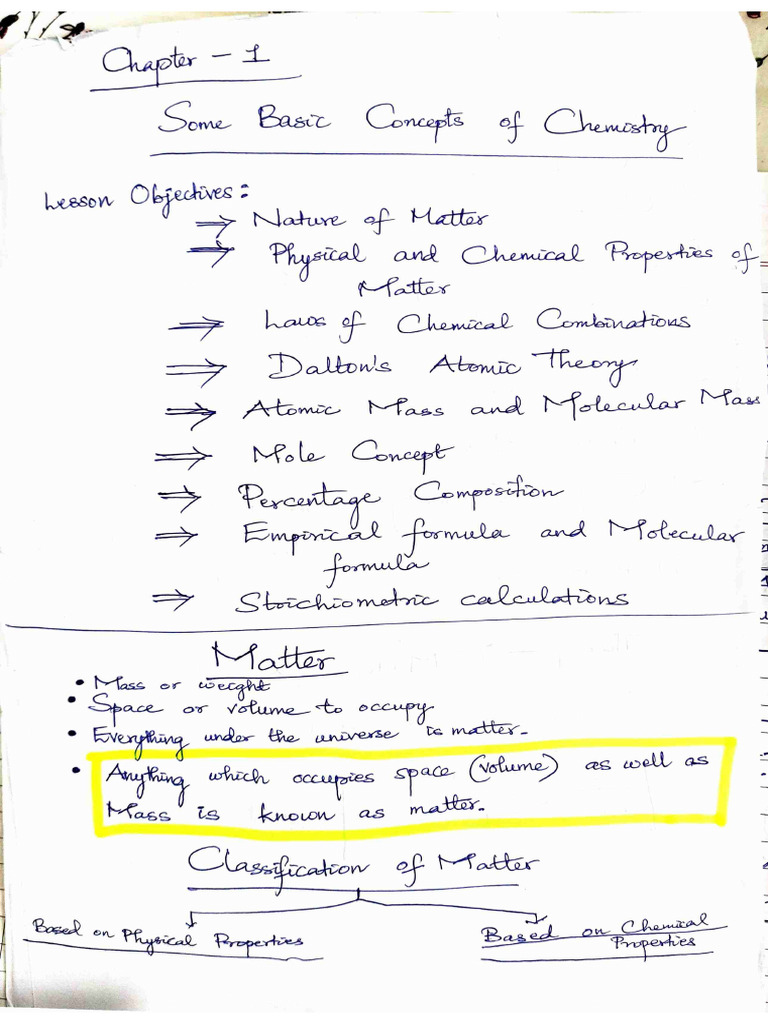 Chapter - 1
Some Basic Concepts of Chemistry
Lesson Objectives:
⇒ Nature of Matter
⇒ Physical and Chemical Properties of
Matter
⇒ Laws of Chemical Combinations
⇒ Dalton's Atomic Theory
⇒ Atomic Mass and Molecular Mass
⇒ Mole Concept
⇒ Percentage Composition
⇒ Empirical formula and Molecular
formula
⇒ Stoichiometric calculations
Matter
• Mass or weight
• Space or volume to occupy
• Everything under the universe is matter.
• Anything which occupies space (volume) as well as
Mass is known as matter.
Classification of Matter
Based on Physical Properties
Based on Chemical
Properties